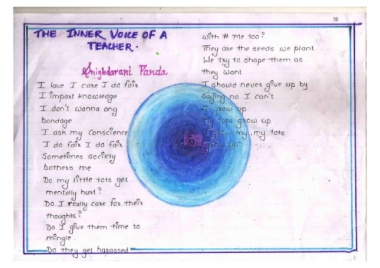 THE INNER VOICE OF A
TEACHER.
Snighdarani Panda
I love I care I do fair
I impart knowledge
I don't wanna any
bondage
I ask my Conscience
I do fair I do fair
Sometimes society
bothers me
Do my little tots get
mentally hurt?
Do I really care for their
thoughts?
Do I give them time to
mingle
Do they get harassed
with me too?
They are the seeds we plant
We try to shape them as
they want
I should never give up by
saying no I can't
grow up
my tots grow up
my tots